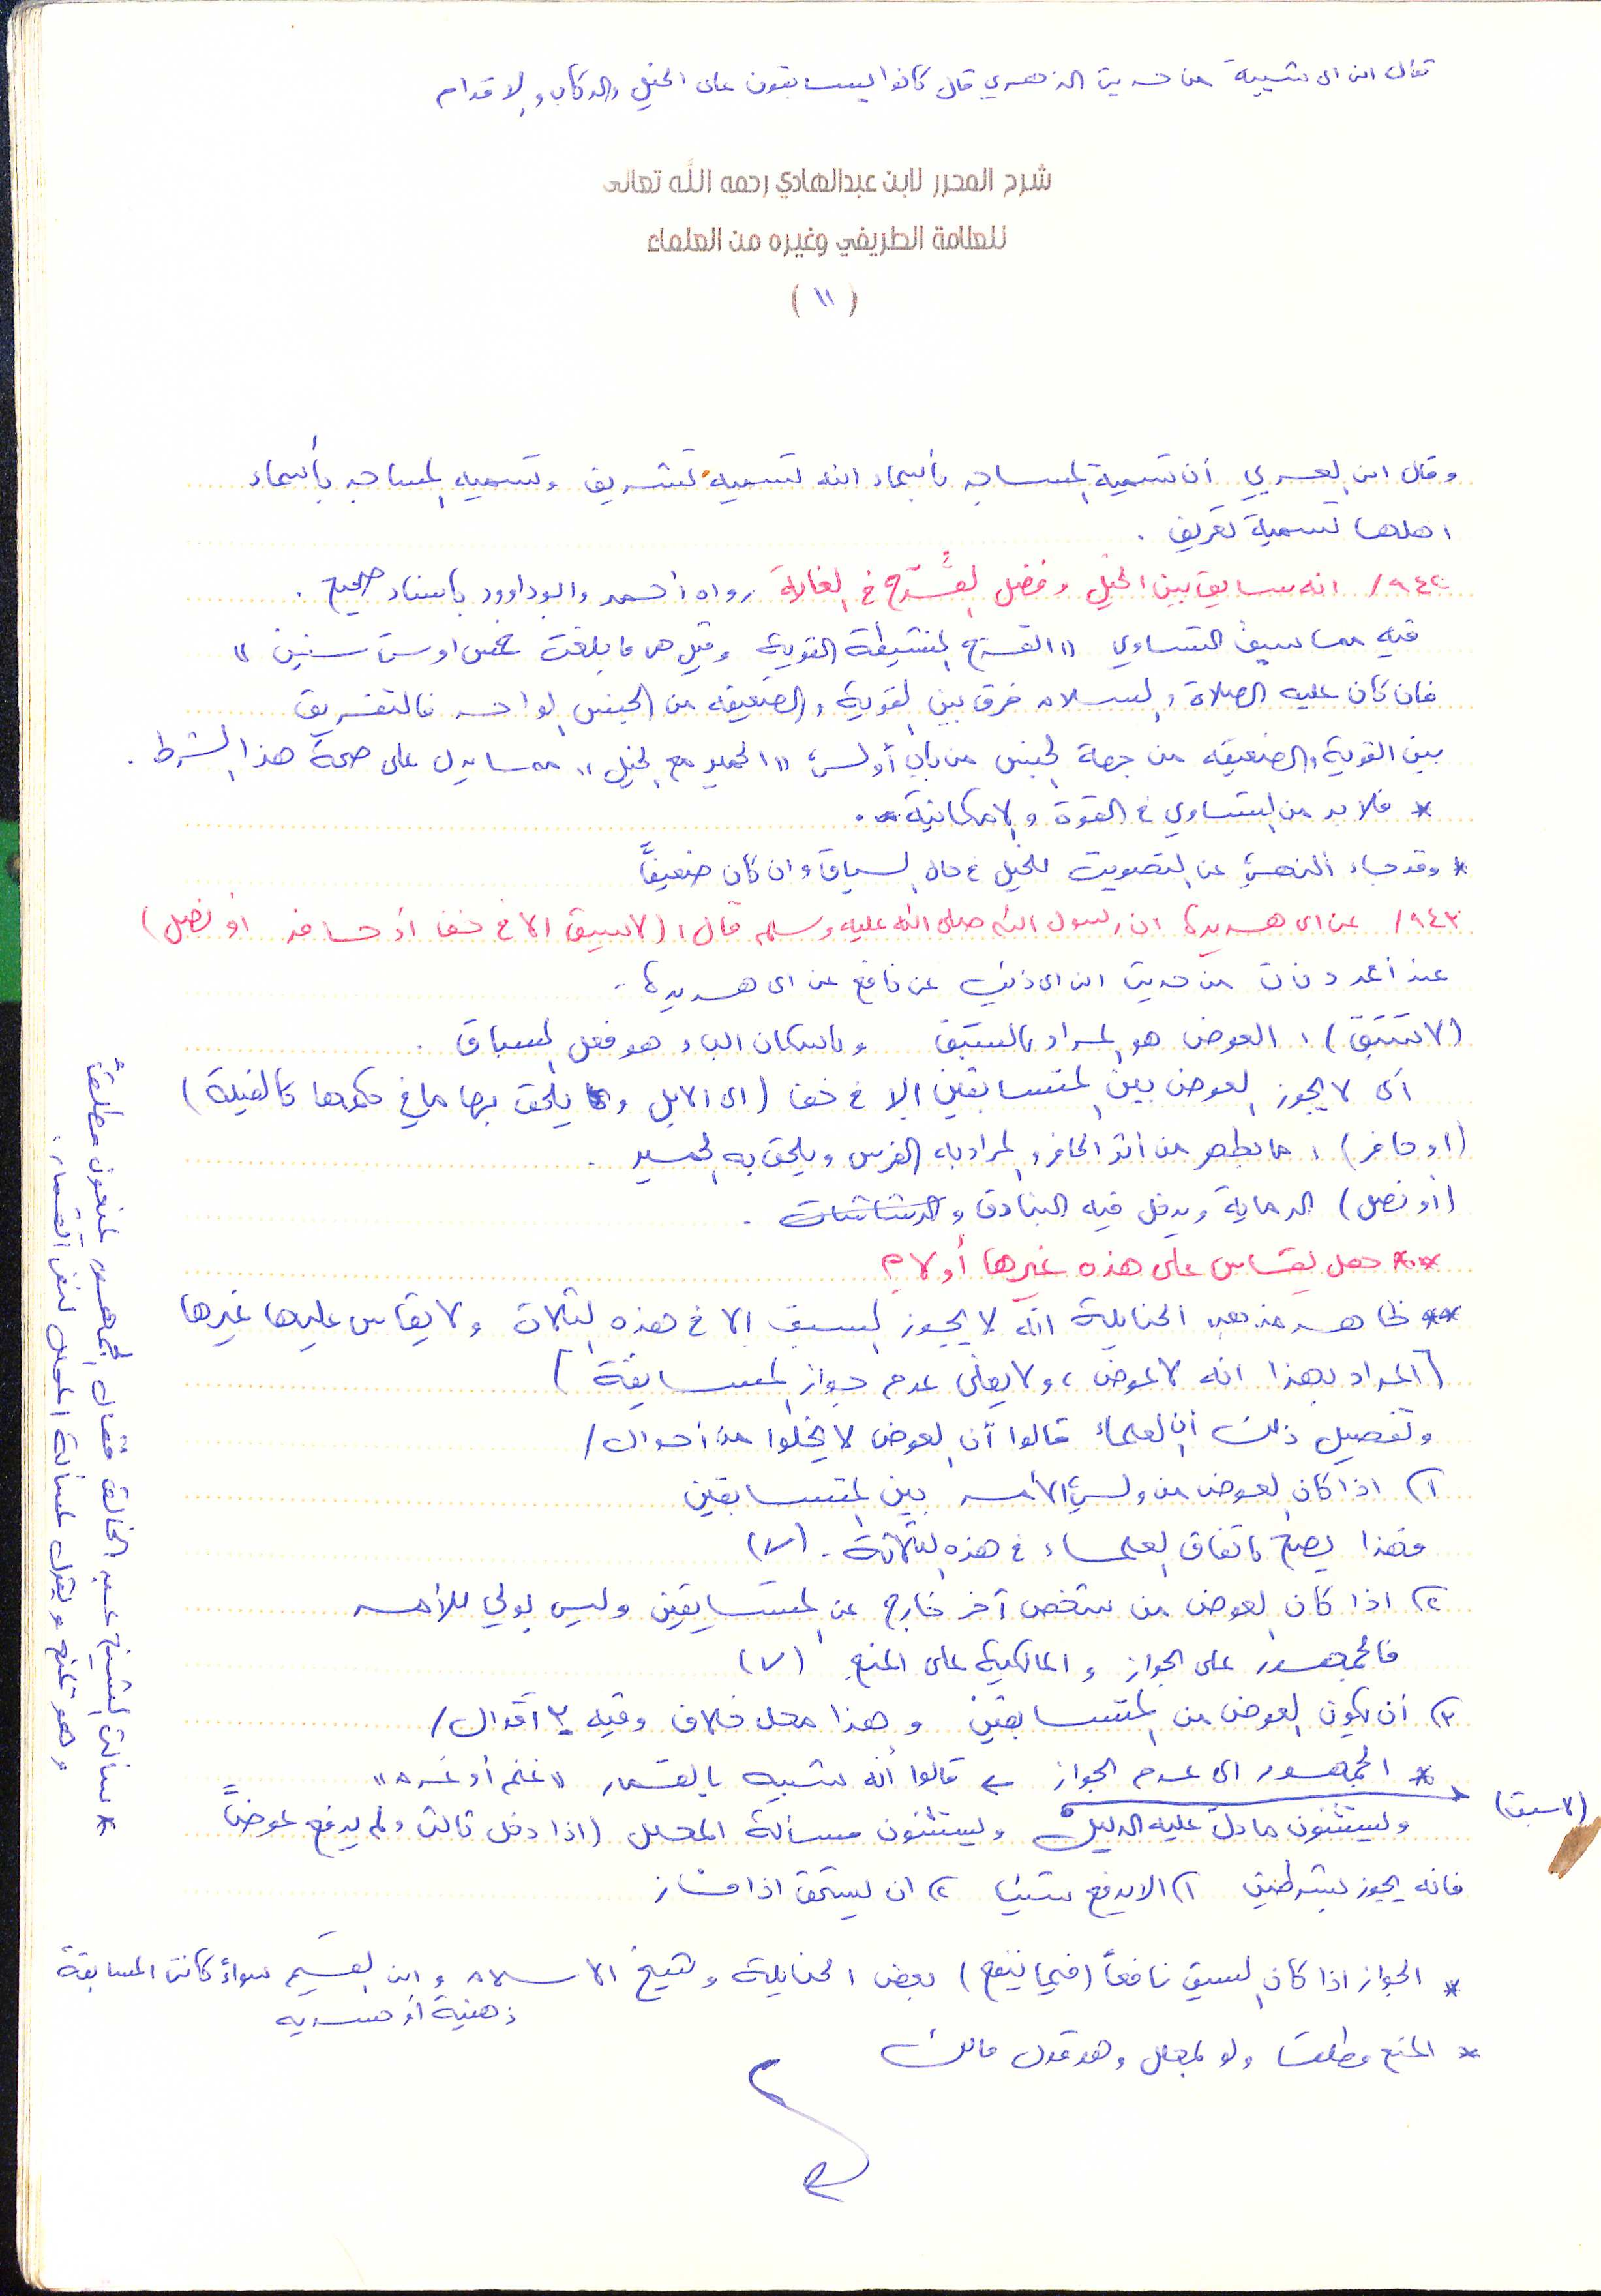 فقال ابن ابى شيبة من حديث الزهري قال كانوا يسابقون على الخيل والركاب والاقدام
شرح المحرر لابن عبدالهادي رحمه الله تعالى
للعلامة الطريفي وغيره من العلماء
( ١١ )
وقال ابن العربي أن تسمية المساجد بأسماء الله تسمية تشريف وتسميه المساجد بأسماء
اهلها تسمية تعريف .
٩٤٢/ انه سابق بين الخيل وفضل القُرَّح في الغاية رواه أحمد وابوداوود باسناد صحيح .
فيه مما سبق التساوي "القرح النشيطة القوية وقيل هي ما بلغت خمس او ست سنين"
فان كان عليه الصلاة والسلام فرق بين القوية والضعيفه من الجنس الواحد فالتفريق
بين القوية والضعيفه من جهة الجنس من باب أولى "الحمير مع الخيل" مما يدل على صحة هذا الشرط .
* فلا بد من التساوي في القوة والامكانية .
* وقد جاء النهي عن التصويت للخيل في حال السباق وان كان ضعيفاً
٩٤٣/ عن ابى هريرة ان رسول الله صلى الله عليه وسلم قال : (لا سبق الا في خف أو حافر او نصل)
عند أحمد من حديث ابن ابى ذئب عن نافع عن ابى هريرة .
(لا سَبَقَ) : العوض هو المراد بالسَبَق وباسكان الباء هو فعل السباق .
أى لا يجوز العوض بين المتسابقين إلا في خف (اى الابل و يلحق بها ما في حكمها كالفيلة)
(او حافر) : ما يظهر من أثر الحافر والمراد به الفرس ويلحق به الحمير .
(أو نصل) الرماية ويدخل فيه البنادق والرشاشات .
** هل يقاس على هذه غيرها أو لا ؟
** ظاهر مذهب الحنابلة انه لا يجوز السبق إلا في هذه الثلاث ولا يقاس عليها غيرها
(المراد بهذا انه لا عوض ، ولا يعنى عدم جواز المسابقة)
وتفصيل ذلك أن العلماء قالوا أن العوض لا يخلوا من أحوال /
١) اذا كان العوض من ولي الأمر بين المتسابقين
فهذا يصح باتفاق العلماء في هذه الثلاثة . (٧)
٢) اذا كان العوض من شخص آخر خارج عن المتسابقين وليس بولي للأمر
فالجمهور على الجواز والمالكية على المنع (٧)
٣) أن يكون العوض من المتسابقين وهذا محل خلاف وفيه ٣ أقوال /
* الجمهور الى عدم الجواز ← قالوا أنه شبيه بالقمار "غنم أو غرم"
(لا سبق)
ويستثنون ما دل عليه الدليل ويستثنون مسألة المحلل (اذا دخل ثالث ولم يدفع عوضاً
فانه يجوز بشرطين ١) الا يدفع شيئا ٢) ان يستحق اذا فاز
* الجواز اذا كان السبق نافعاً (فيما ينفع) بعض الحنابلة وشيخ الاسلام وابن القيم سواءً كانت المسابقة
ذهنية أو حسيه
* المنع مطلقا ولو لمحلل وهو قول مالك
* سألت الشيخ عبد الخالق فقال الجمهور يمنعون مطلقاً